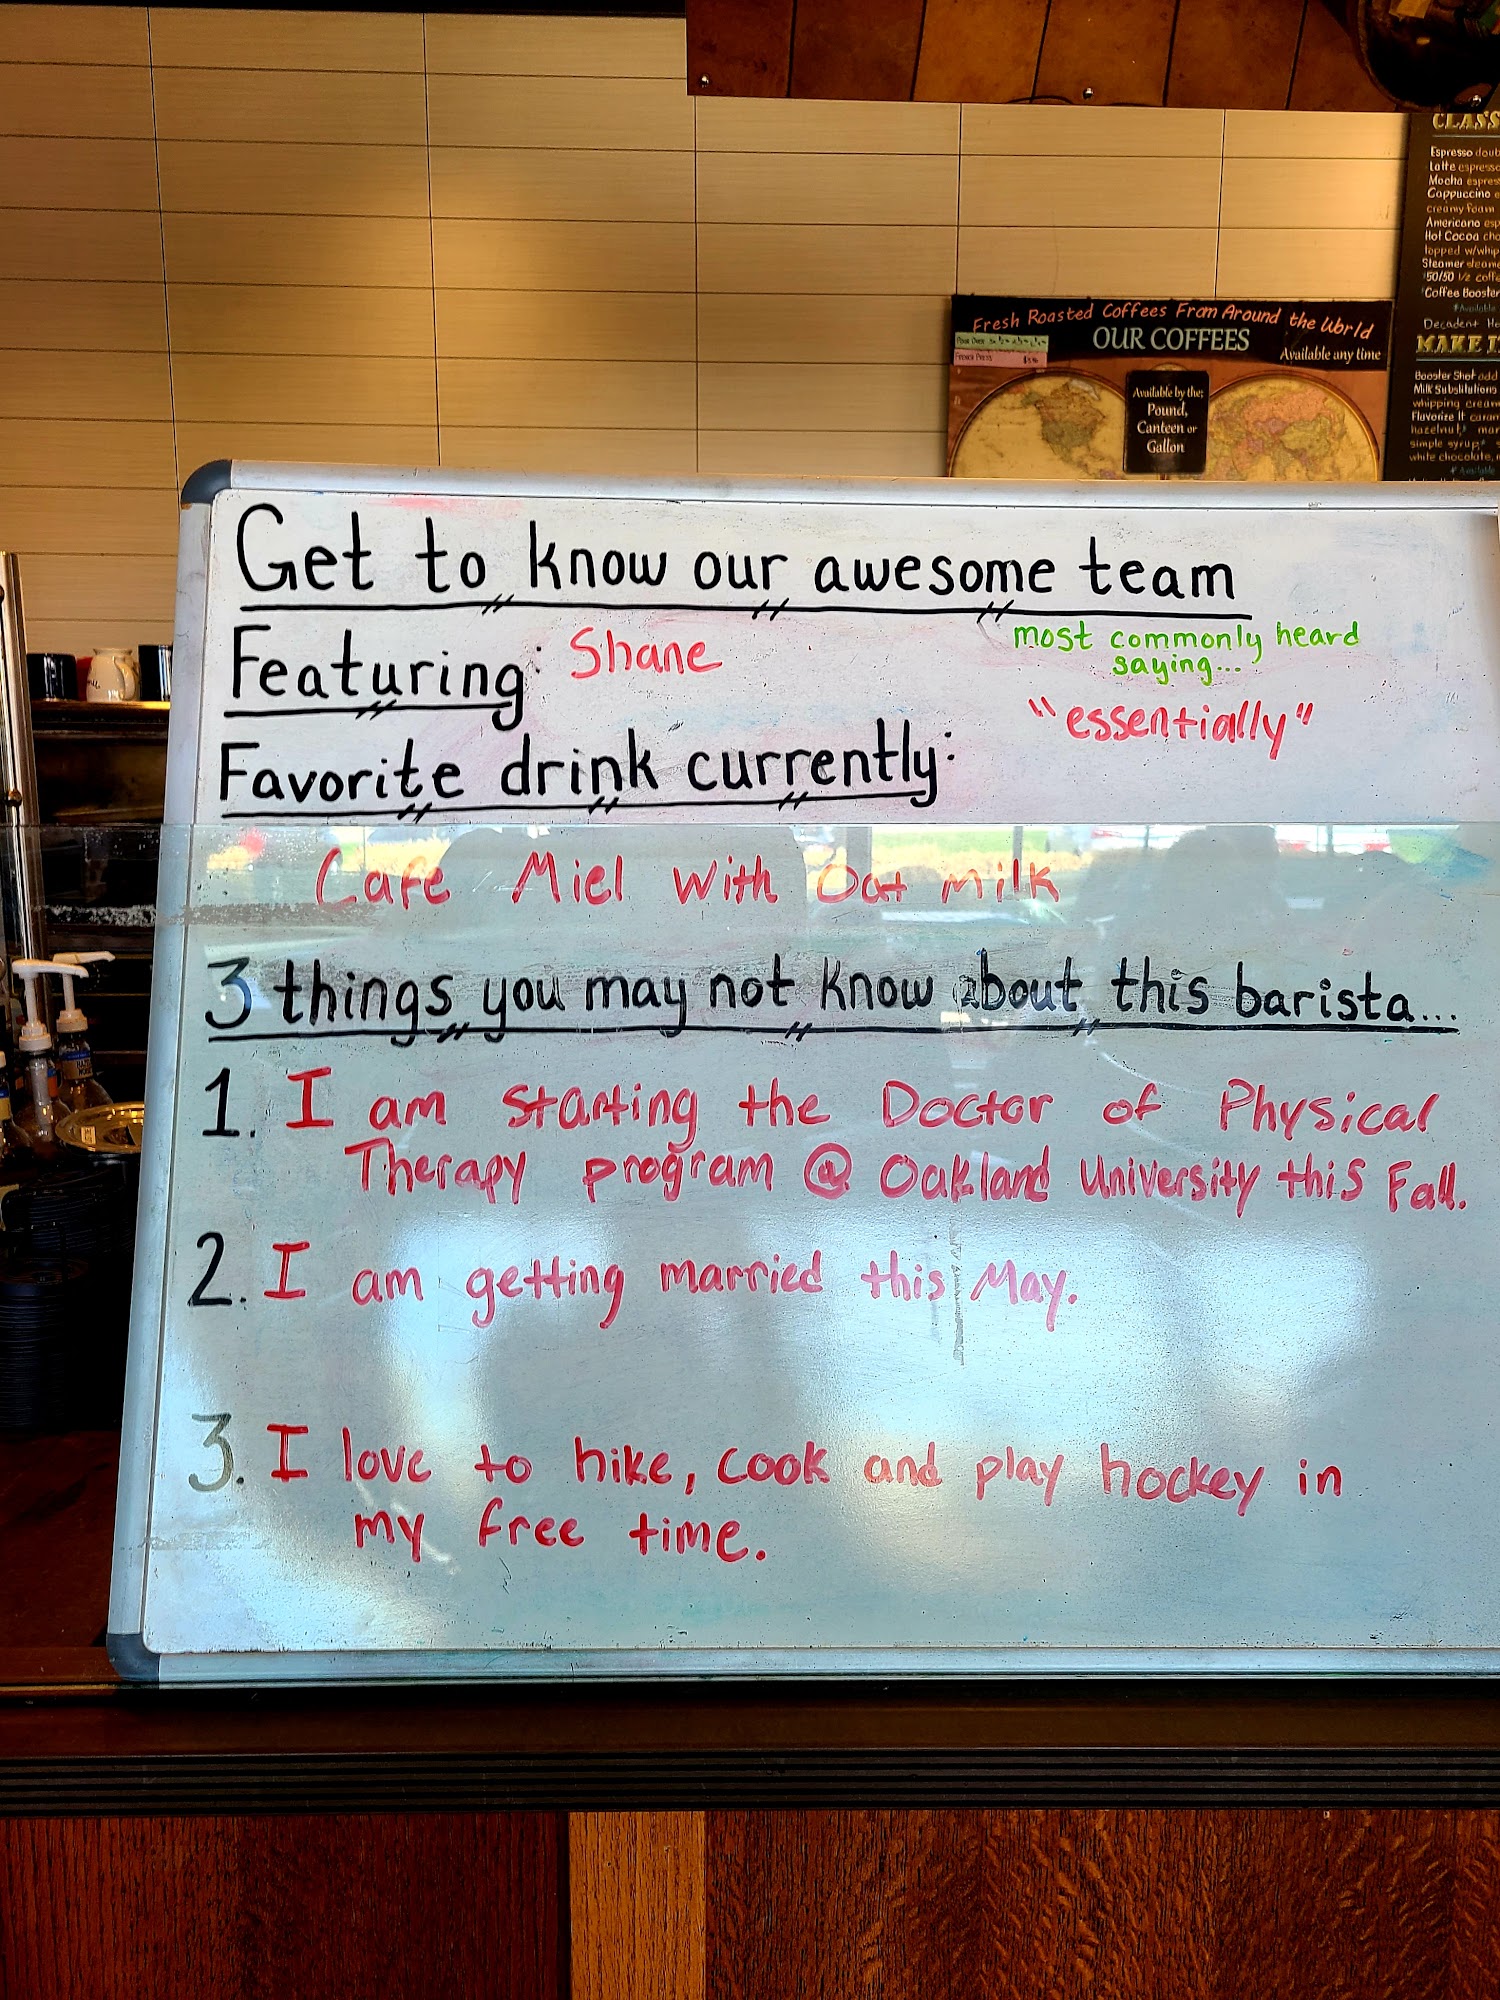 CLASS
Espresso doub
Latte espresso
Mocha espres
Cappuccino e
creamy foam
Americano esp
Hot Cocoa cho
topped w/whip
Steamer steame
50/50 1/2 coffe
Coffee Booster
Decadent He
MAKE I
Booster Shot add
Milk Substitutions
whipping cream
Flavorize It caram
hazelnut, mar
simple syrup,
white chocolate,
Fresh Roasted Coffees From Around the World
OUR COFFEES
Available any time
French Press
Available by the:
Pound,
Canteen or
Gallon
Get to know our awesome team
Featuring: Shane
most commonly heard
saying...
"essentially"
Favorite drink currently:
Cafe Miel with Oat milk
3 things you may not know about this barista...
1. I am starting the Doctor of Physical
Therapy program @ Oakland University this Fall.
2. I am getting married this May.
3. I love to hike, cook and play hockey in
my free time.